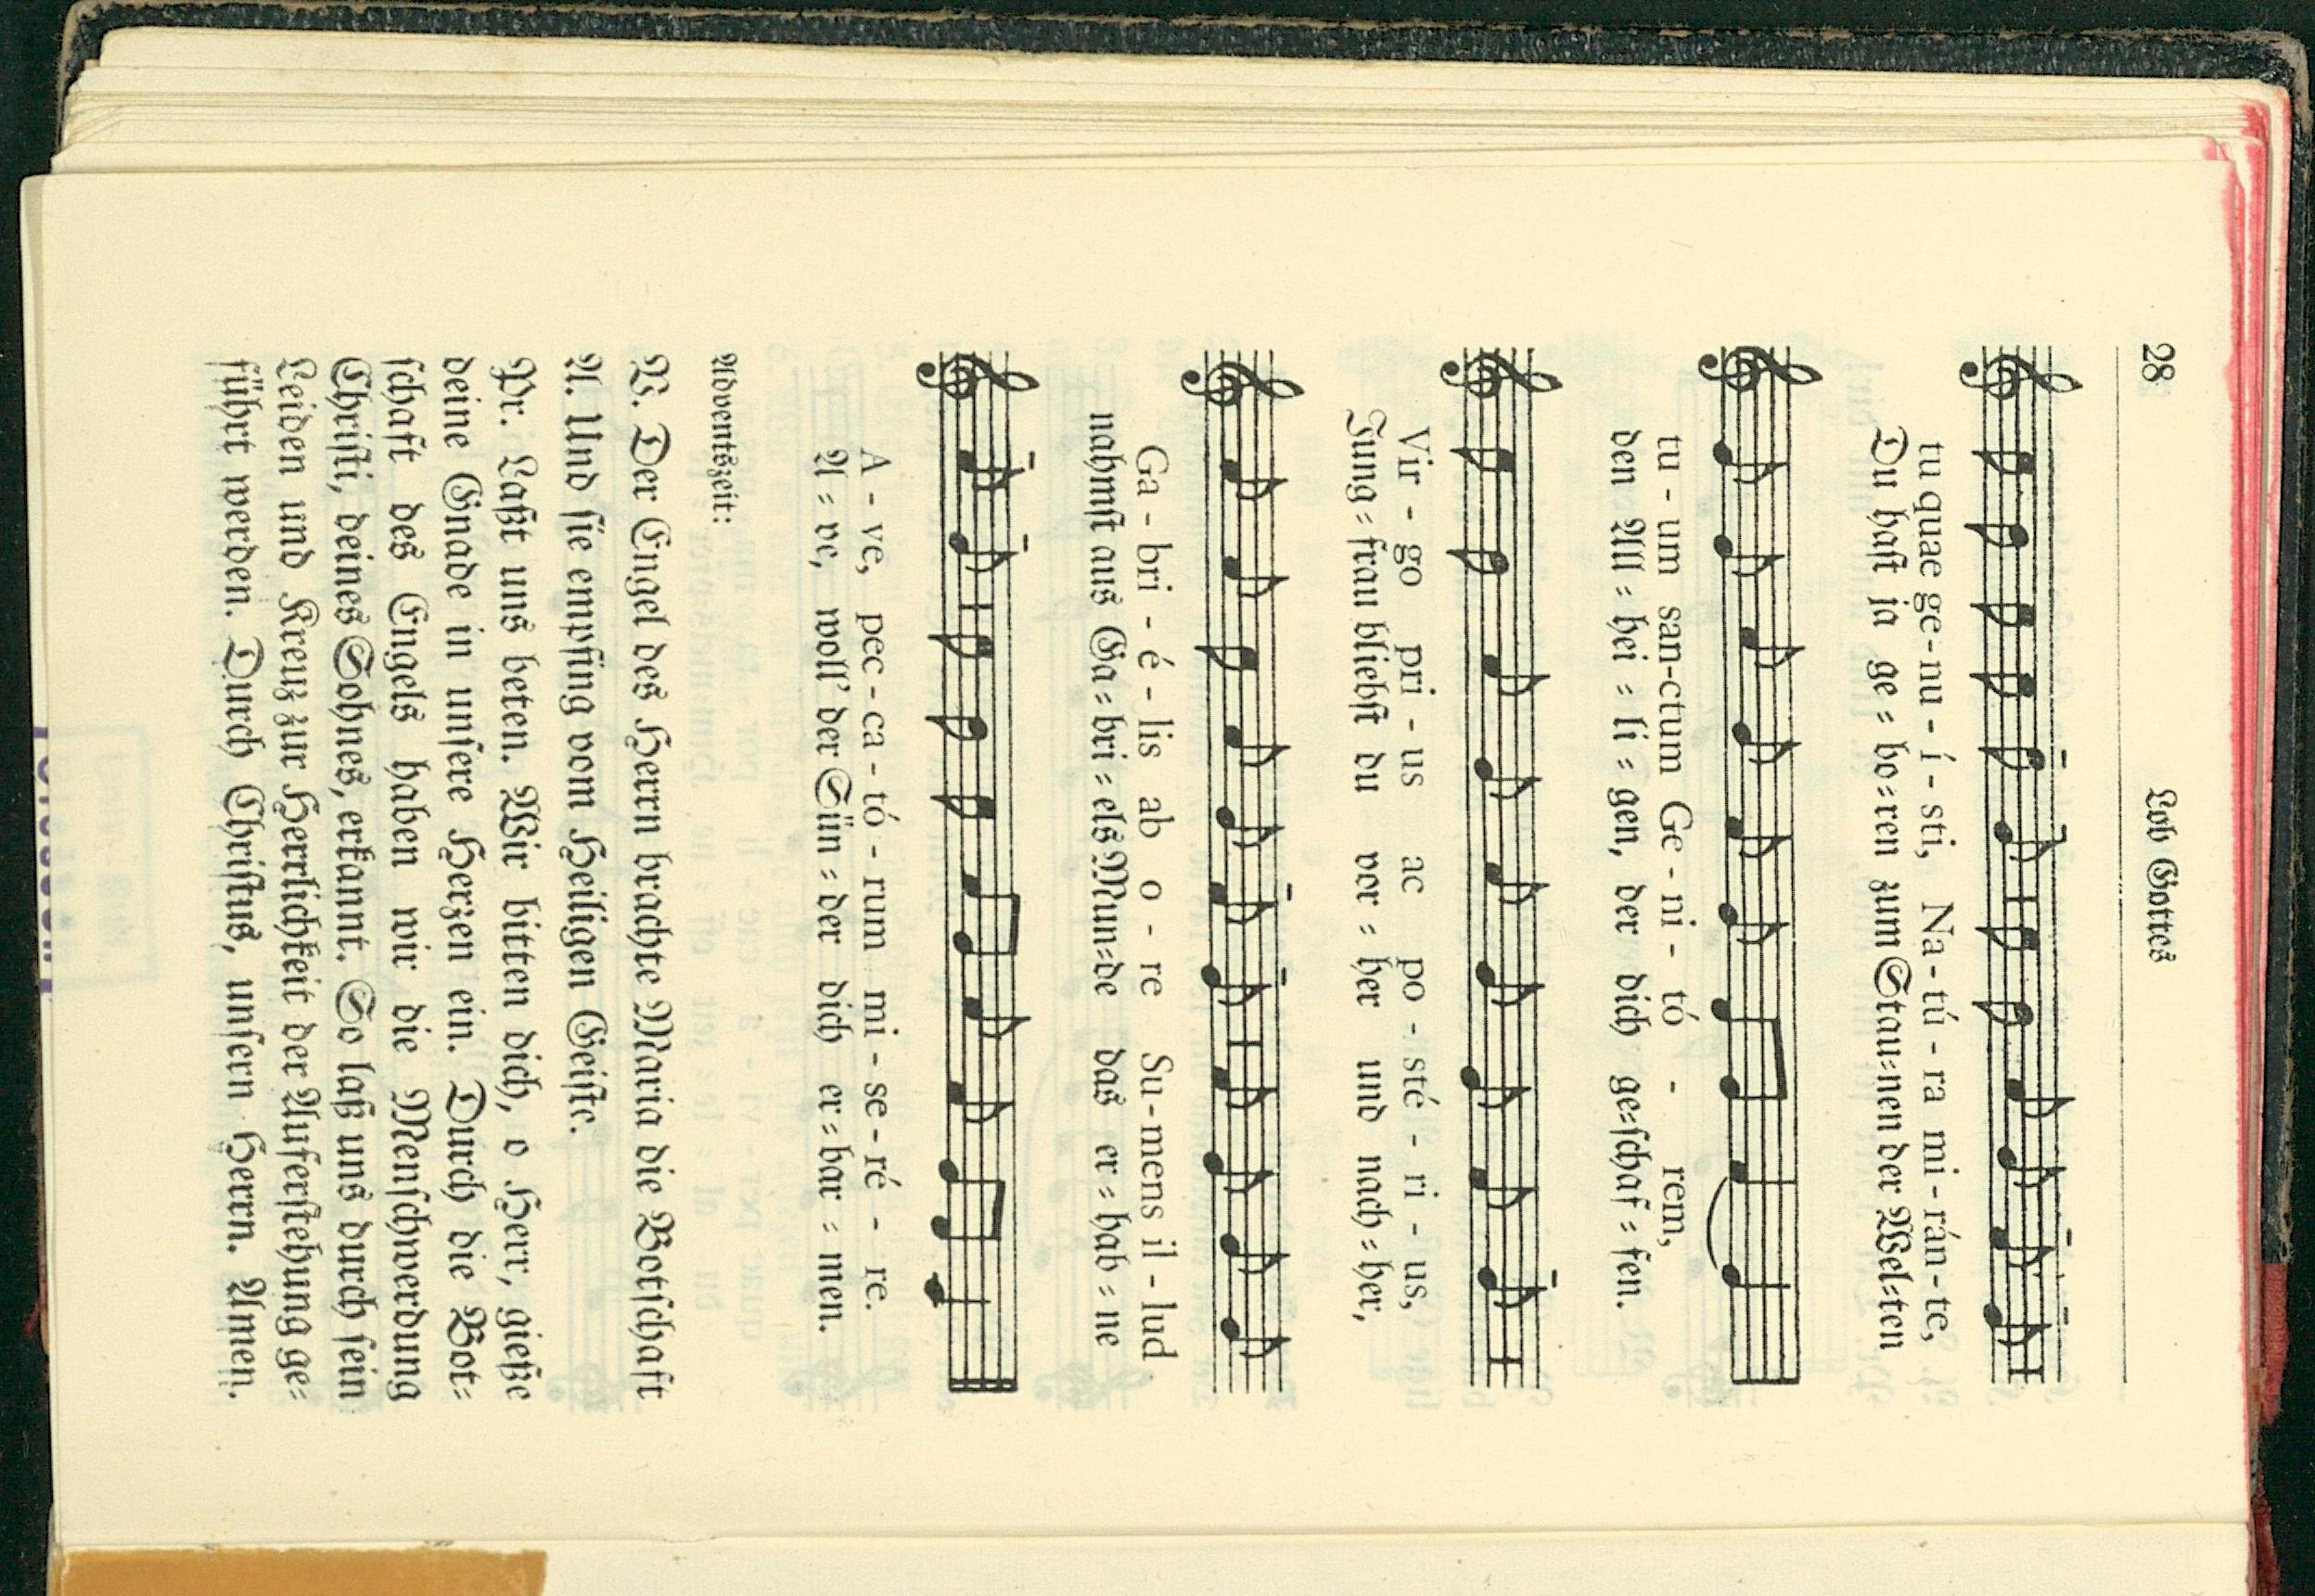 28
Lob Gottes
tu quae ge-nu - í - sti, Na-tú - ra mi-rán-te,
Du haſt ja ge = bo=ren zum Stau=nen der Wel=ten
tu - um san-ctum Ge - ni - tó - rem,
den All = hei = li = gen, der dich ge=ſchaf = fen.
Vir - go pri - us ac po - sté - ri - us,
Jung = frau bliebſt du vor = her und nach = her,
Ga - bri - é - lis ab o - re Su-mens il - lud
nahmſt aus Ga = bri = els Mun=de das er = hab = ne
A - ve, pec - ca - tó - rum mi - se - ré - re.
A = ve, woll' der Sün = der dich er = bar = men.
Adventszeit:
V. Der Engel des Herrn brachte Maria die Botſchaft
A. Und ſie empfing vom Heiligen Geiſte.
Pr. Laßt uns beten. Wir bitten dich, o Herr, gieße
deine Gnade in unſere Herzen ein. Durch die Bot=
ſchaft des Engels haben wir die Menſchwerdung
Chriſti, deines Sohnes, erkannt. So laß uns durch ſein
Leiden und Kreuz zur Herrlichkeit der Auferſtehung ge=
führt werden. Durch Chriſtus, unſern Herrn. Amen.